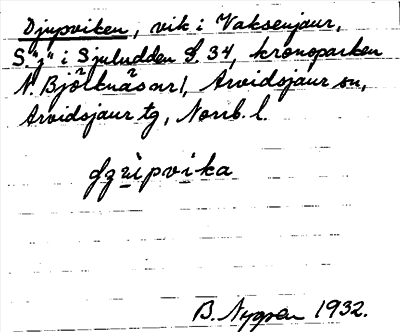 Djupviken, vik i Vaksenjaur,
S. "j" i Sjuludden S. 34, kronoparken
N. Björknäs nr 1, Arvidsjaur sn,
Arvidsjaur tg, Norrb. l.
B. Nygren 1932.